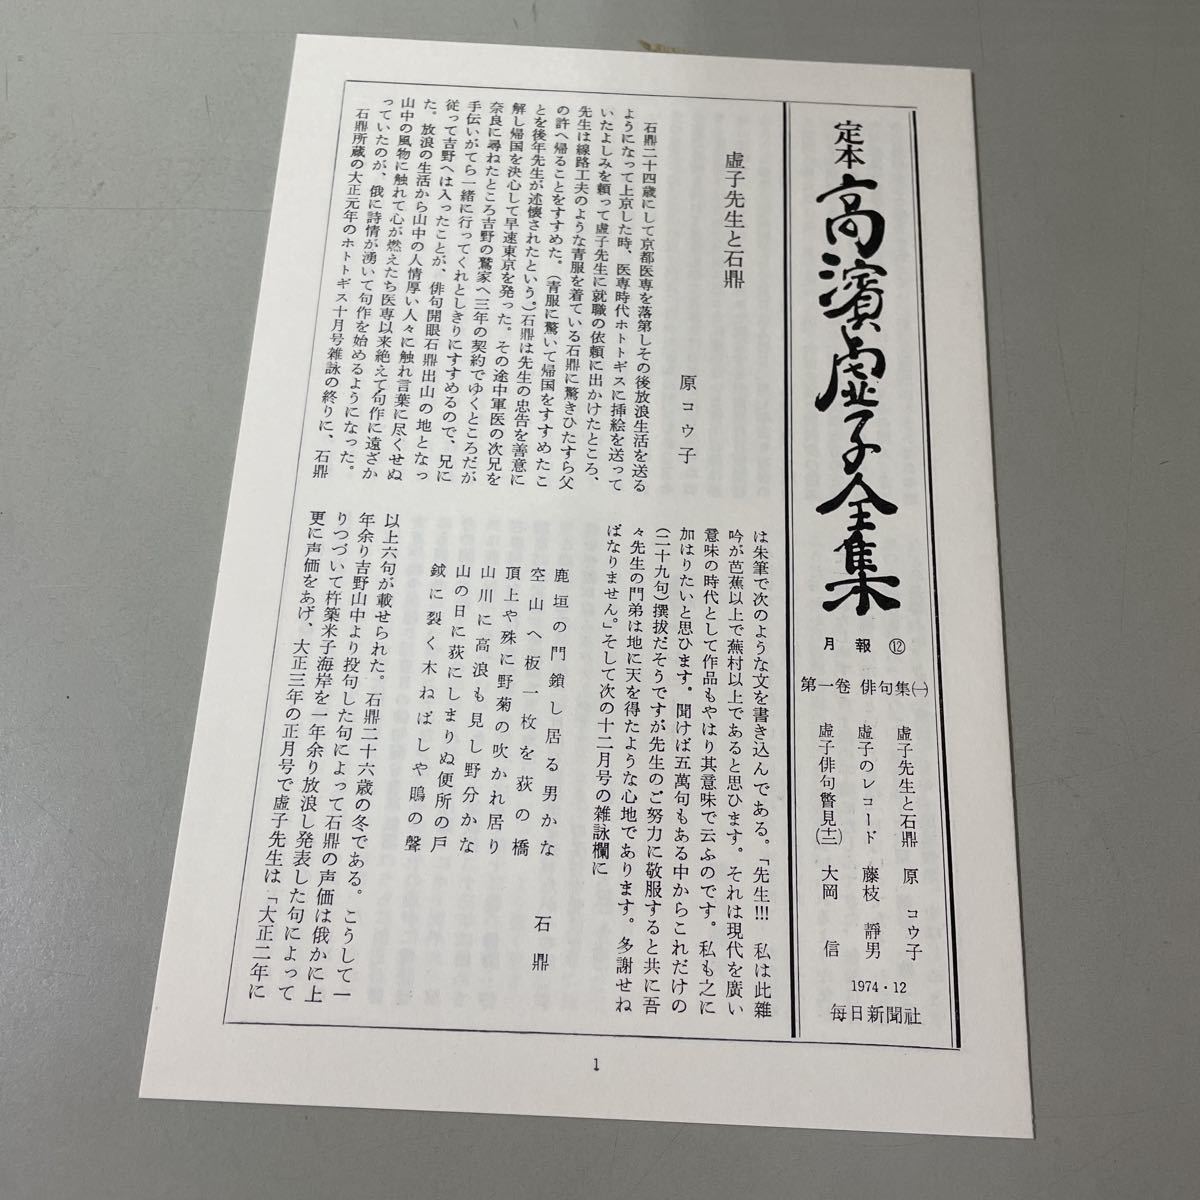 定本 高濱虚子全集
月報 ⑫
第一卷 俳句集㈠
虛子先生と石鼎 原 コウ子
虛子のレコード 藤枝 靜男
虛子俳句瞥見(十二) 大岡 信
1974・12
毎日新聞社
虛子先生と石鼎
原コウ子
石鼎二十四歳にして京都医専を落第しその後放浪生活を送る
ようになって上京した時、医専時代ホトトギスに挿絵を送って
いたよしみを頼って虚子先生に就職の依頼に出かけたところ、
先生は線路工夫のような青服を着ている石鼎に驚きひたすら父
の許へ帰ることをすすめた。（青服に驚いて帰国をすすめたこ
とを後年先生が述懐されたという。）石鼎は先生の忠告を善意に
解し帰国を決心して早速東京を発った。その途中軍医の次兄を
奈良に尋ねたところ吉野の鷲家へ三年の契約でゆくところだが
手伝いがてら一緒に行ってくれとしきりにすすめるので、兄に
従って吉野へは入ったことが、俳句開眼石鼎出山の地となっ
た。放浪の生活から山中の人情厚い人々に触れ言葉に尽くせぬ
山中の風物に触れて心が燃えたち医専以来絶えて句作に遠ざか
っていたのが、俄に詩情が湧いて句作を始めるようになった。
石鼎所蔵の大正元年のホトトギス十月号雑詠の終りに、石鼎
は朱筆で次のような文を書き込んである。「先生!!! 私は此雜
吟が芭蕉以上で蕪村以上であると思ひます。それは現代を廣い
意味の時代として作品もやはり其意味で云ふのです。私も之に
加はりたいと思ひます。聞けば五萬句もある中からこれだけの
（二十九句）撰拔ださうですが先生のご努力に敬服すると共に吾
々先生の門弟は地に天を得たような心地であります。多謝せね
ばなりません。」そして次の十二月号の雑詠欄に
鹿垣の門鎖し居る男かな 石鼎
空山へ板一枚を荻の橋
頂上や殊に野菊の吹かれ居り
山川に高浪も見し野分かな
山の日に荻にしまりぬ便所の戸
鉞に裂く木ねばしや鵙の聲
以上六句が載せられた。石鼎二十六歳の冬である。こうして一
年余り吉野山中より投句した句によって石鼎の声価は俄かに上
りつづいて杵築米子海岸を一年余り放浪し発表した句によって
更に声価をあげ、大正三年の正月号で虚子先生は「大正二年に
1